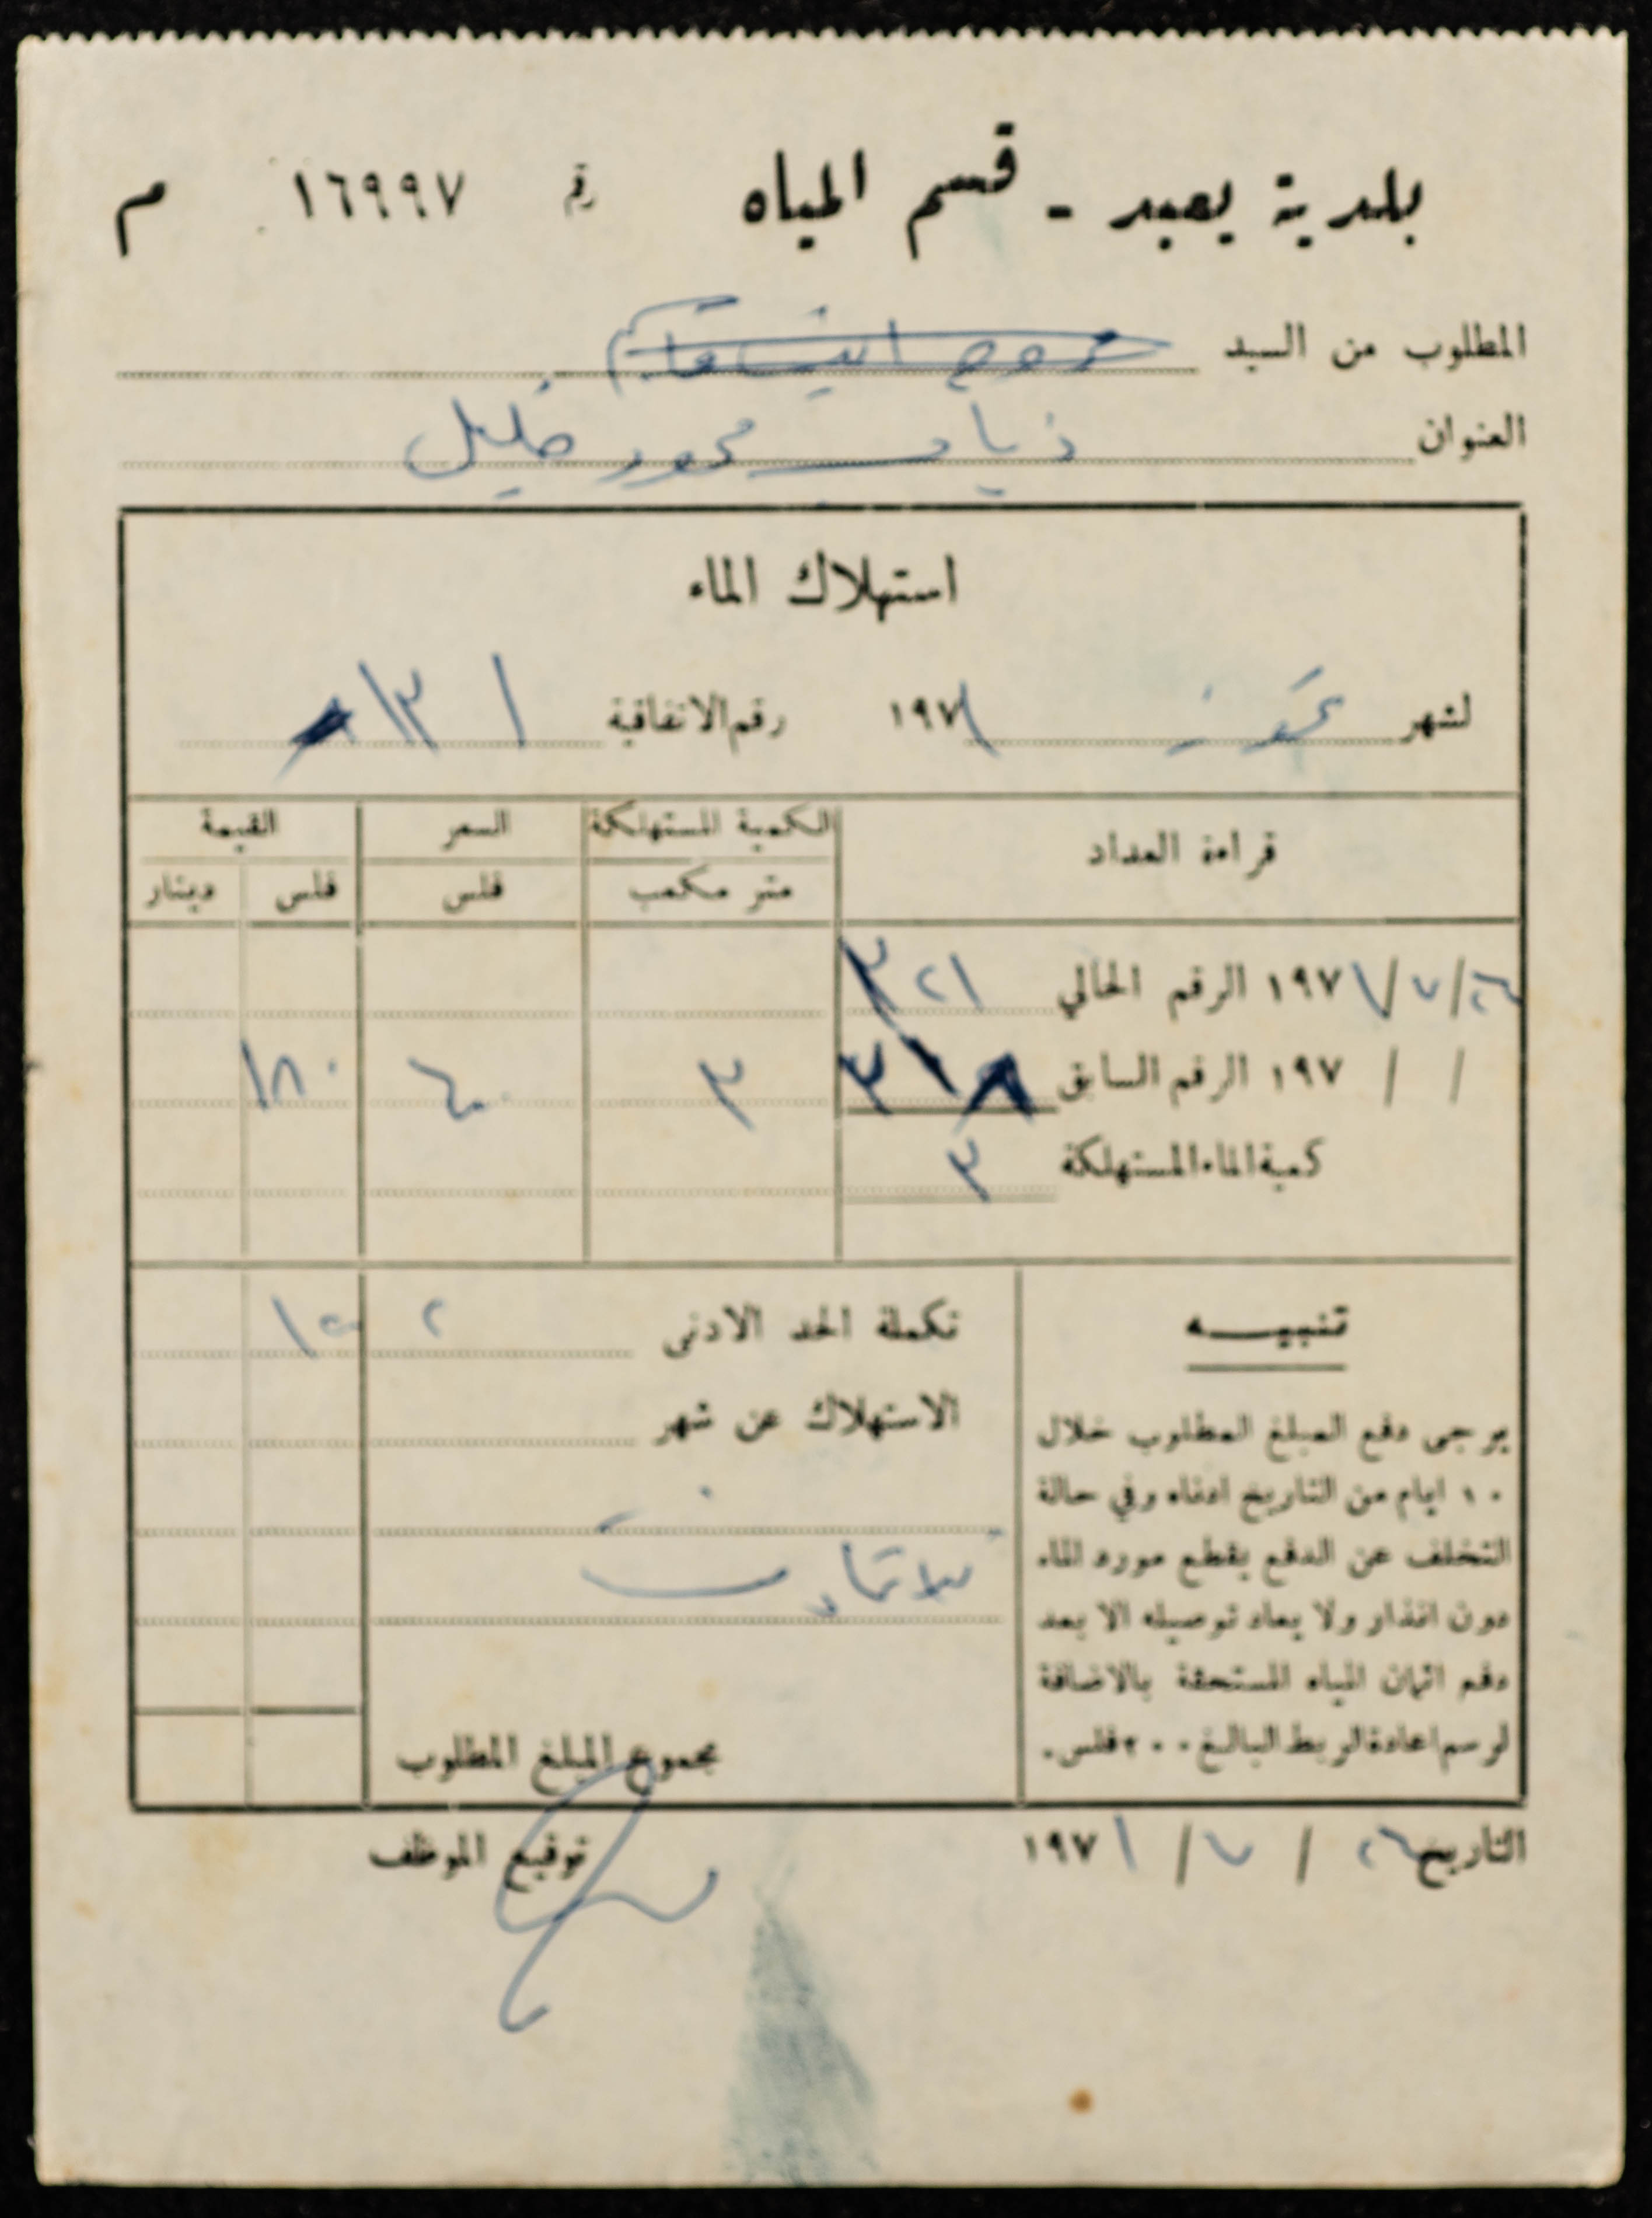 بلدية يعبد - قسم المياه رقم ١٦٩٩٧ م
المطلوب من السيد
العنوان ذياب محمود خليل
استهلاك الماء
لشهر تموز ١٩٧١ رقم الاتفاقية ١٣١
قراءة العداد الكمية المستهلكة السعر القيمة
متر مكعب فلس فلس دينار
٢٦/٧/١٩٧١ الرقم الحالي ٣٢١
/ / ١٩٧ الرقم السابق ٣١٨ ٣ ٦٠ ١٨٠
كمية الماء المستهلكة ٣
تنبيه
يرجى دفع المبلغ المطلوب خلال
١٠ ايام من التاريخ ادناه وفي حالة
التخلف عن الدفع يقطع مورد الماء
دون انذار ولا يعاد توصيله الا بعد
دفع اثمان المياه المستحقة بالاضافة
لرسم اعادة الربط البالغ ٢٠٠ فلس.
تكملة الحد الادنى ٢
الاستهلاك عن شهر
مجموع المبلغ المطلوب
التاريخ ٢٦ / ٧ / ١٩٧١ توقيع الموظف